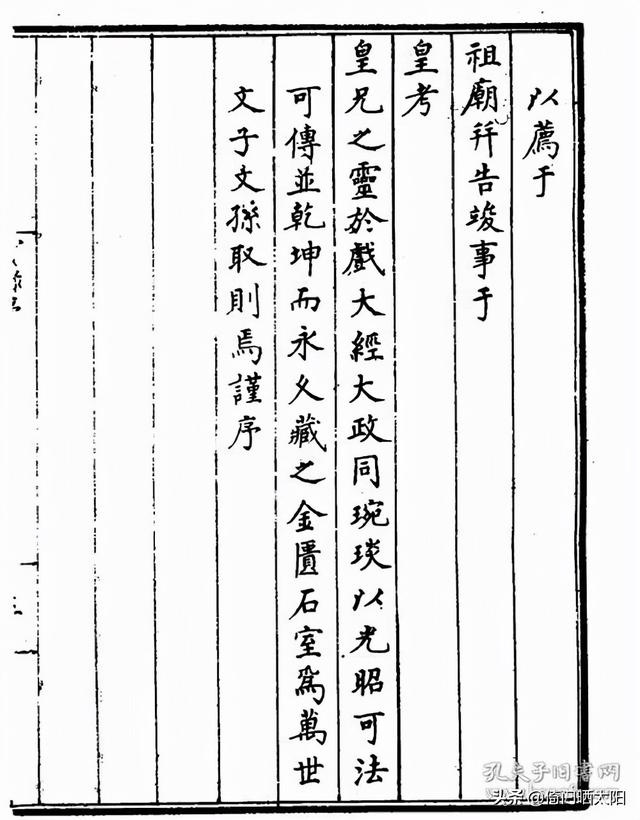 以薦于
祖廟拜告竣事于
皇考
皇兄之靈於戲大經大政同琬琰以光昭可法
可傳並乾坤而永久藏之金匱石室爲萬世
文子文孫取則焉謹序
孔夫子旧书网
头条 @倚门晒太阳